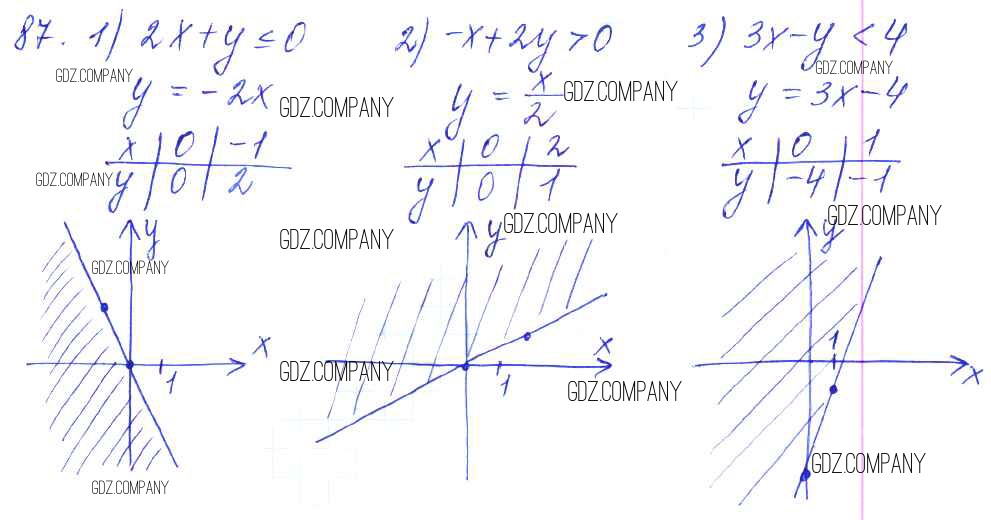 87. 1) 2x+y ≤ 0 2) -x+2y>0 3) 3x-y < 4
GDZ.COMPANY GDZ.COMPANY
y = -2x GDZ.COMPANY y = x/2 GDZ.COMPANY y = 3x-4
x | 0 | -1 x | 0 | 2 x | 0 | 1
GDZ.COMPANY y | 0 | 2 y | 0 | 1 y | -4 | -1
y GDZ.COMPANY y GDZ.COMPANY y GDZ.COMPANY
GDZ.COMPANY
x x 1
1 GDZ.COMPANY 1 GDZ.COMPANY x
GDZ.COMPANY
GDZ.COMPANY